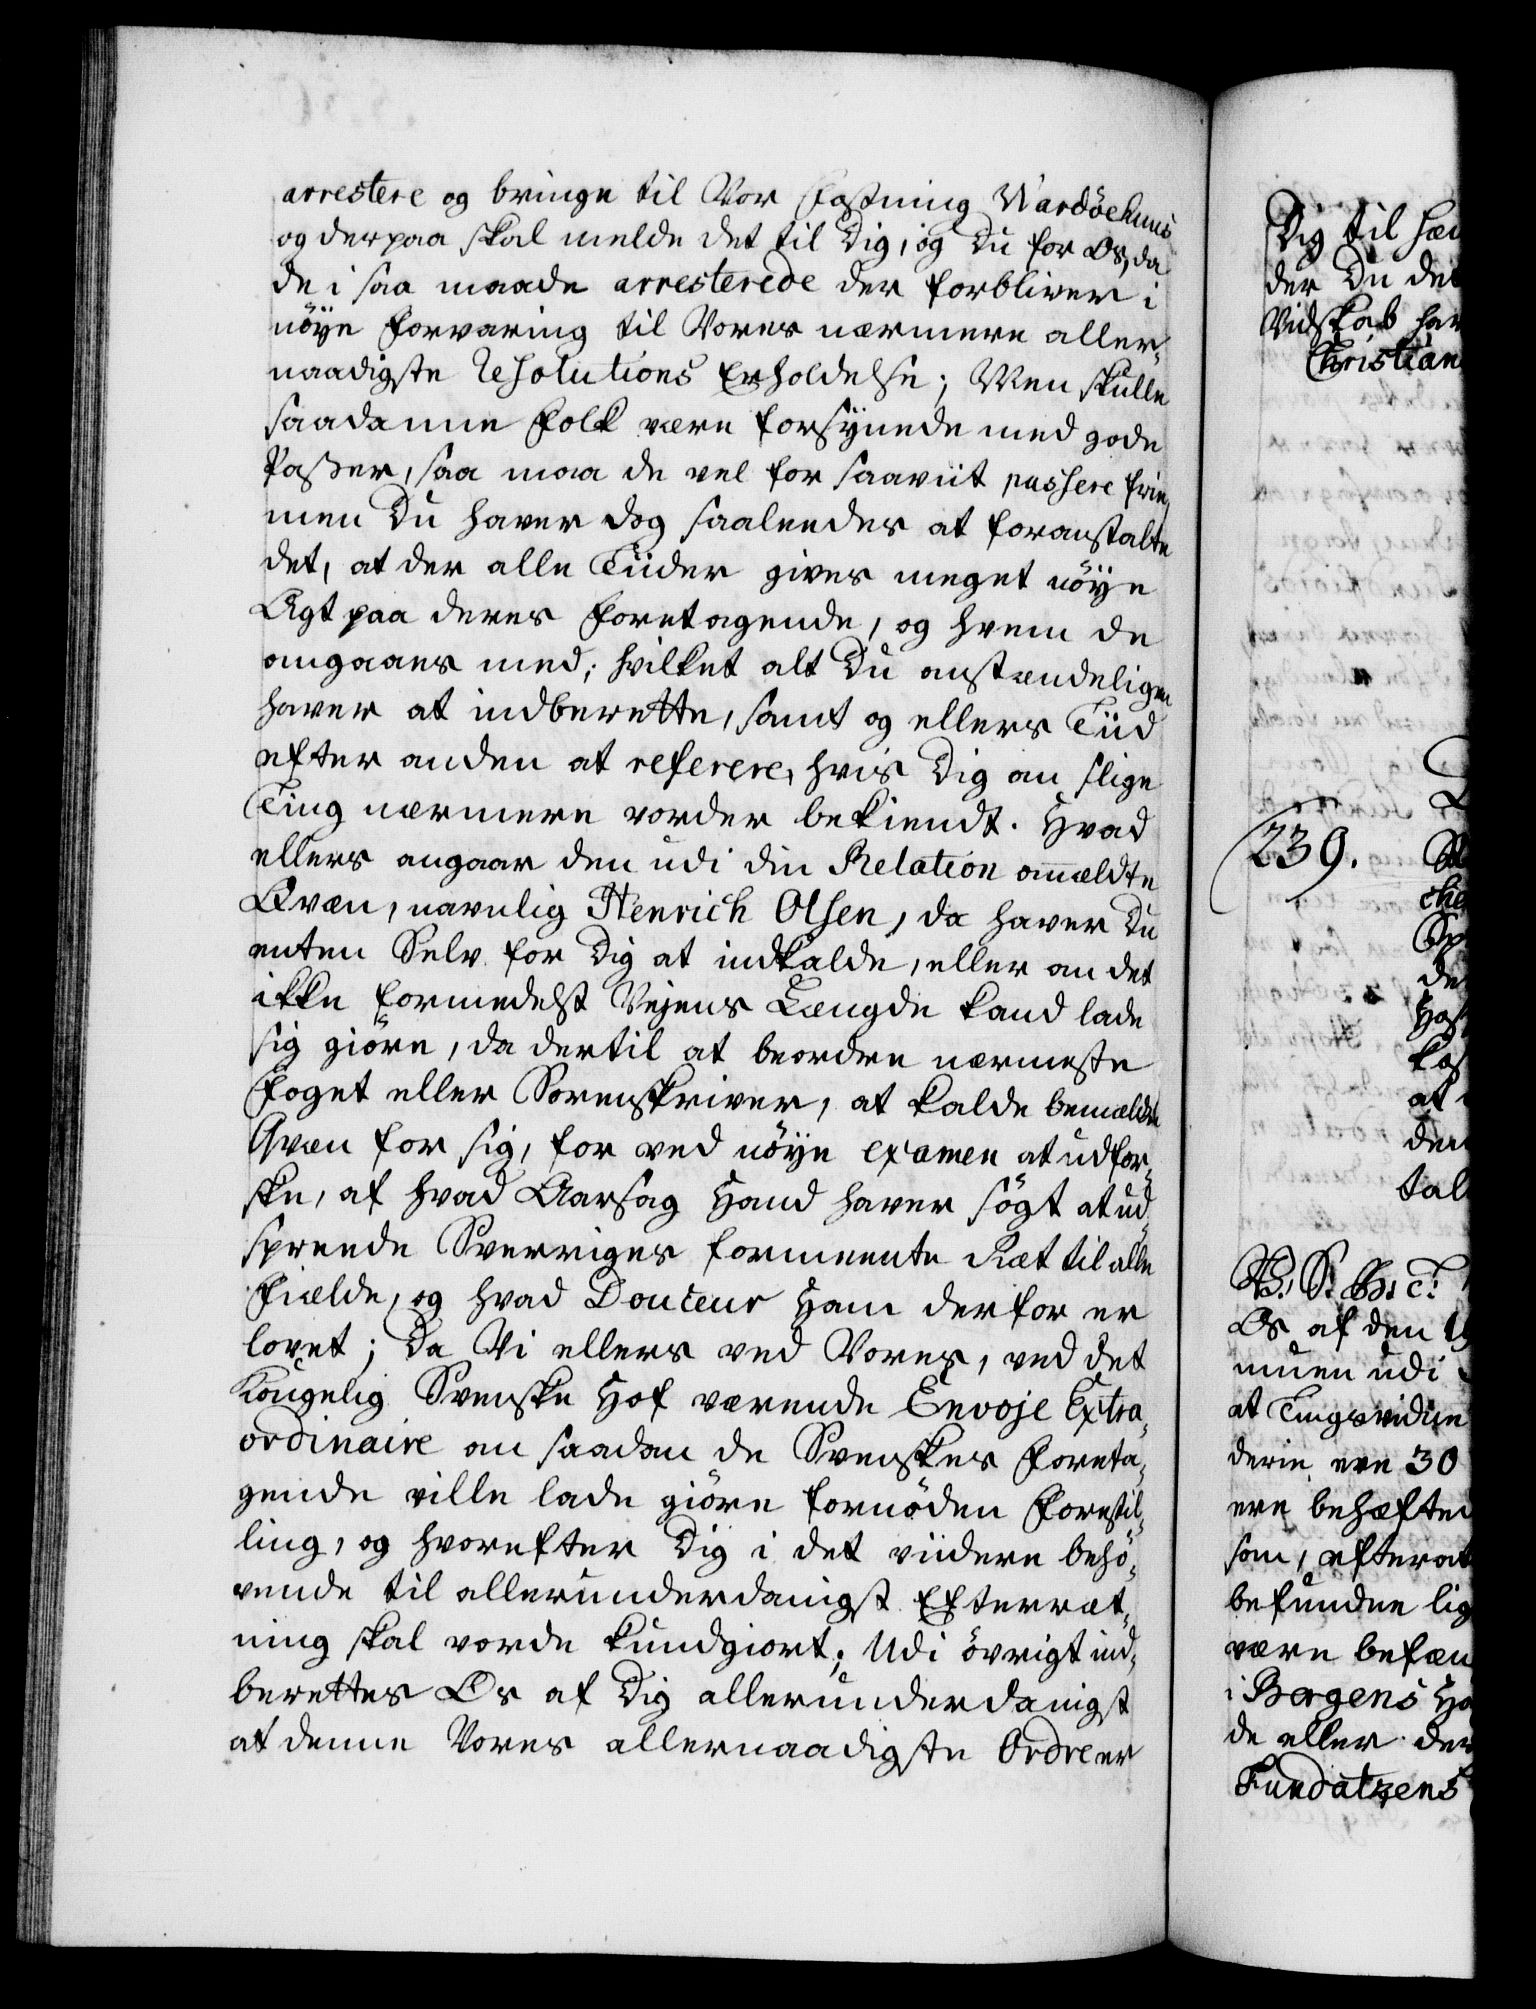 arrestere og bringe til Vor Fæstning Wardöehuus
og derpaa skal melde det til Dig, og Du for Os, da
de i saa maade arresterede der forbliver i
nöye Forvaring til Vores nærmere aller-
naadigste Resolutions Erholdelse; Men skulle
saadanne Folk være forsÿnede med gode
Passer, saa maa de vel for saaviit passere frie,
men Du haver dog saaleedes at foranstalte
det, at der alle Tiider gives meget nöÿe
Agt paa deres Foretagende, og hvem de
omgaaes med; hvilket alt Du omstændeligen
haver at indberette, samt og ellers Tiid
efter anden at referere, hvis Dig om slige
Ting nærmere vorder bekiendt. Hvad
ellers angaar den udi din Relation ommældte
Qvæn, navnlig Henrich Olsen, da haver Du
enten Selv for Dig at indkalde, eller om det
ikke formedelst Vejens Længde kand lade
sig giöre, da dertil at beordre nærmeste
Foget eller Sorenskriver, at kalde bemældte
Qvæn for sig, for ved nöÿe examen at udfor-
ske, af hvad Aarsag Hand haver sögt at ud-
spreede Sverriges formeente Ræt til alle
Fielde, og hvad Douceur Ham derfor er
lovet; Da Vi ellers ved Vores, ved det
Kongelig Svenske Hof værende Envoje Extra-
ordinaire om saadan de Svenskes Foreta-
gende ville lade giöre fornöden Forestil-
ling, og hvorefter Dig i det viidere behö-
vende til allerunderdanigst Efterræt-
ning skal vorde kundgiort; Udi övrigt ind-
berettes Os af Dig allerunderdanigst
at denne Vores allernaadigste Ordre er
Dig til hæn
der Du det
Vidskab har
Christian
239.
che
de
at
den
tal
Os af den
muen udi
at Tingsvidne
derie ere 30
ere behæfted
som, efterat
befunden lig
være befæn
i Bergens Ho
de eller der
Fundatzens